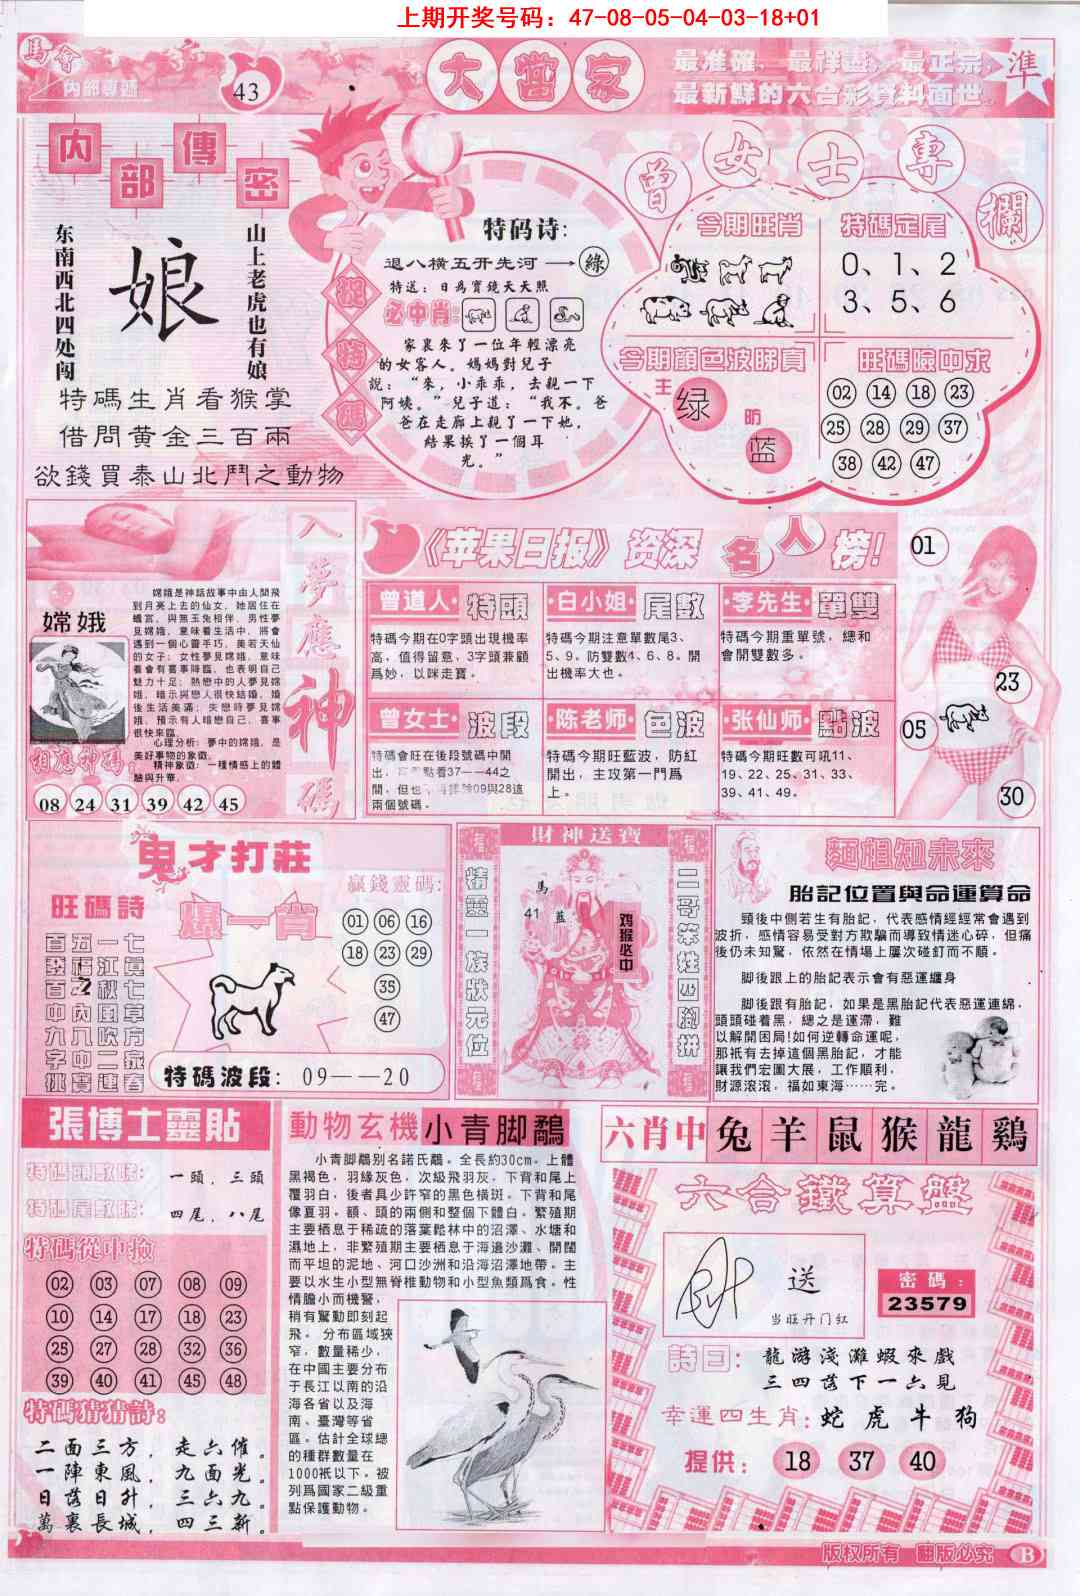 上期开奖号码：47-08-05-04-03-18+01
馬會
内部專遞
43
大贏家
最准確、最祥盡、最正宗，
最新鮮的六合彩資料面世
準
内部傳密
东南西北四处闯
娘
山上老虎也有娘
特碼生肖看猴掌
借問黄金三百兩
欲錢買泰山北鬥之動物
捉特碼
特码诗：
退八横五开先河→綠
特送：日爲寶鏡天天照
必中肖：
家裏來了一位年輕漂亮
的女客人。媽媽對兒子
説：“來，小乖乖，去親一下
阿姨。”兒子道：“我不。爸
爸在走廊上親了一下她，
結果挨了一個耳
光。”
曾女士專欄
今期旺肖
特碼定尾
0、1、2
3、5、6
今期顔色波睇真
主 绿
防 蓝
旺碼險中求
02 14 18 23
25 28 29 37
38 42 47
入夢應神碼
嫦娥
嫦娥是神話故事中由人間飛
到月亮上去的仙女，她居住在
蟾宫，與無玉兔相伴，男性夢
見嫦娥，意味着生活中，將會
遇到一個心靈手巧，美若天仙
的女子；女性夢見嫦娥，意味
着會有喜事降臨，也表明自己
魅力十足；熱戀中的人夢見嫦
娥，暗示與戀人很快結婚，婚
後生活美滿；失戀時夢見嫦
娥，預示有人暗戀自己，喜事
很快來臨。
心理分析：夢中的嫦娥，是
美好事物的象徵。
精神象徵：一種情感上的體
驗與升華。
相應神碼：
08 24 31 39 42 45
《苹果日报》资深名人榜！
曾道人·特頭
特碼今期在0字頭出現機率
高，值得留意，3字頭兼顧
爲妙，以咪走寶。
·白小姐·尾數
特碼今期注意單數尾3、
5、9。防雙數4、6、8。開
出機率大也。
·李先生·單雙
特碼今期重單號，總和
會開雙數多。
曾女士·波段
特碼會旺在後段號碼中開
出，點看37——44之
間，但也09與28這
兩個號碼。
·陈老师·色波
特碼今期旺藍波，防紅
開出，主攻第一門爲
上。
·张仙师·點波
特碼今期旺數可吼11、
19、22、25、31、33、
39、41、49。
01
23
05
30
鬼才打莊
旺碼詩
百五一七
發福江真
百之秋七
中内風草
九八吹方
字中二家
挑寶連春
爆一肖
贏錢靈碼：
01 06 16
18 23 29
35
47
特碼波段：09——20
財神送寶
精靈一族狀元位
馬
41 蓝
鸡猴必中
二哥笨姓四脚拼
麵相知未來
胎記位置與命運算命
頸後中側若生有胎記，代表感情經經常會遇到
波折，感情容易受對方欺騙而導致情迷心碎，但痛
後仍未知驚，依然在情場上屢次碰釘而不順。
脚後跟上的胎記表示會有惡運纏身
脚後跟有胎記，如果是黑胎記代表惡運連綿，
頭頭碰着黑，總之是運滯，難
以解開困局！如何逆轉命運呢，
那衹有去掉這個黑胎記，才能
讓我們宏圖大展，工作順利，
財源滾滾，福如東海……完。
張博士靈貼
特碼頭數睇：一頭，三頭
特碼尾數睇：四尾，八尾
特碼從中撿
02 03 07 08 09
10 14 17 18 23
25 27 28 32 36
39 40 41 45 48
特碼猜猜詩：
二面三方，走六催。
一陣東風，九面光。
日落日升，三六九。
萬裏長城，四三新。
動物玄機 小青脚鷸
小青脚鷸别名諾氏鷸。全長約30cm。上體
黑褐色，羽緣灰色，次級飛羽灰，下背和尾上
覆羽白，後者具少許窄的黑色横斑。下背和尾
像夏羽。額、頸的兩側和整個下體白。繁殖期
主要栖息于稀疏的落葉鬆林中的沼澤、水塘和
濕地上，非繁殖期主要栖息于海邊沙灘、開闊
而平坦的泥地、河口沙洲和沿海沼澤地帶。主
要以水生小型無脊椎動物和小型魚類爲食。性
情膽小而機警，
稍有驚動即刻起
飛。分布區域狹
窄，數量稀少，
在中國主要分布
于長江以南的沿
海各省以及海
南、臺灣等省
區。估計全球總
的種群數量在
1000衹以下。被
列爲國家二級重
點保護動物。
六肖中 兔 羊 鼠 猴 龍 鷄
六合鐵算盤
送
当旺开门红
密碼：
23579
詩曰：龍游淺灘蝦來戲
三四落下一六見
幸運四生肖：蛇 虎 牛 狗
提供：18 37 40
版权所有 翻版必究 B